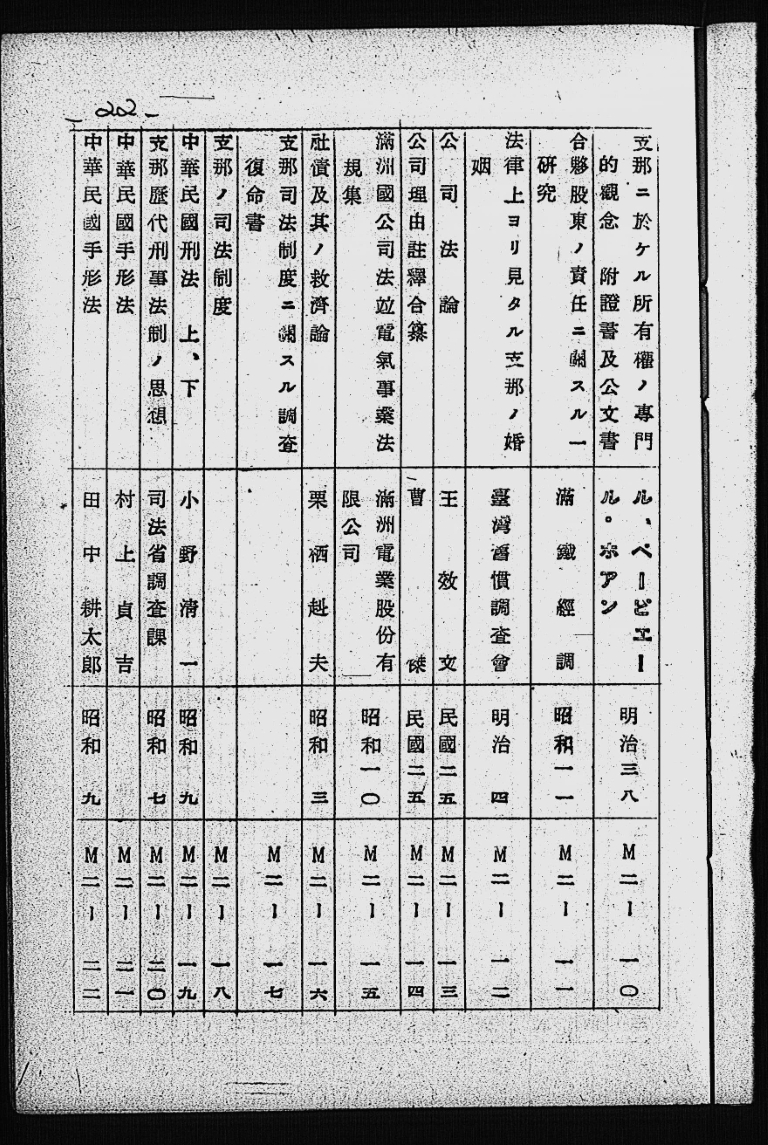 - 22 -
支那ニ於ケル所有權ノ專門
的觀念 附證書及公文書
ル、ペーピエー
ル。ホアン
明治三八
M二ー一〇
合夥股東ノ責任ニ關スル一
研究
滿鐵經調
昭和一一
M二ー一一
法律上ヨリ見タル支那ノ婚
姻
臺灣舊慣調査會
明治 四
M二ー一二
公司法論
王效文
民國二五
M二ー一三
公司理由註釋合纂
曹 傑
民國二五
M二ー一四
滿洲國公司法竝電氣事業法
規集
滿洲電業股份有
限公司
昭和一〇
M二ー一五
社債及其ノ救濟論
栗栖赳夫
昭和 三
M二ー一六
支那司法制度ニ關スル調査
復命書
M二ー一七
支那ノ司法制度
M二ー一八
中華民國刑法 上、下
小野清一
昭和 九
M二ー一九
支那歷代刑事法制ノ思想
司法省調査課
昭和 七
M二ー二〇
中華民國手形法
村上貞吉
M二ー二一
中華民國手形法
田中耕太郎
昭和 九
M二ー二二